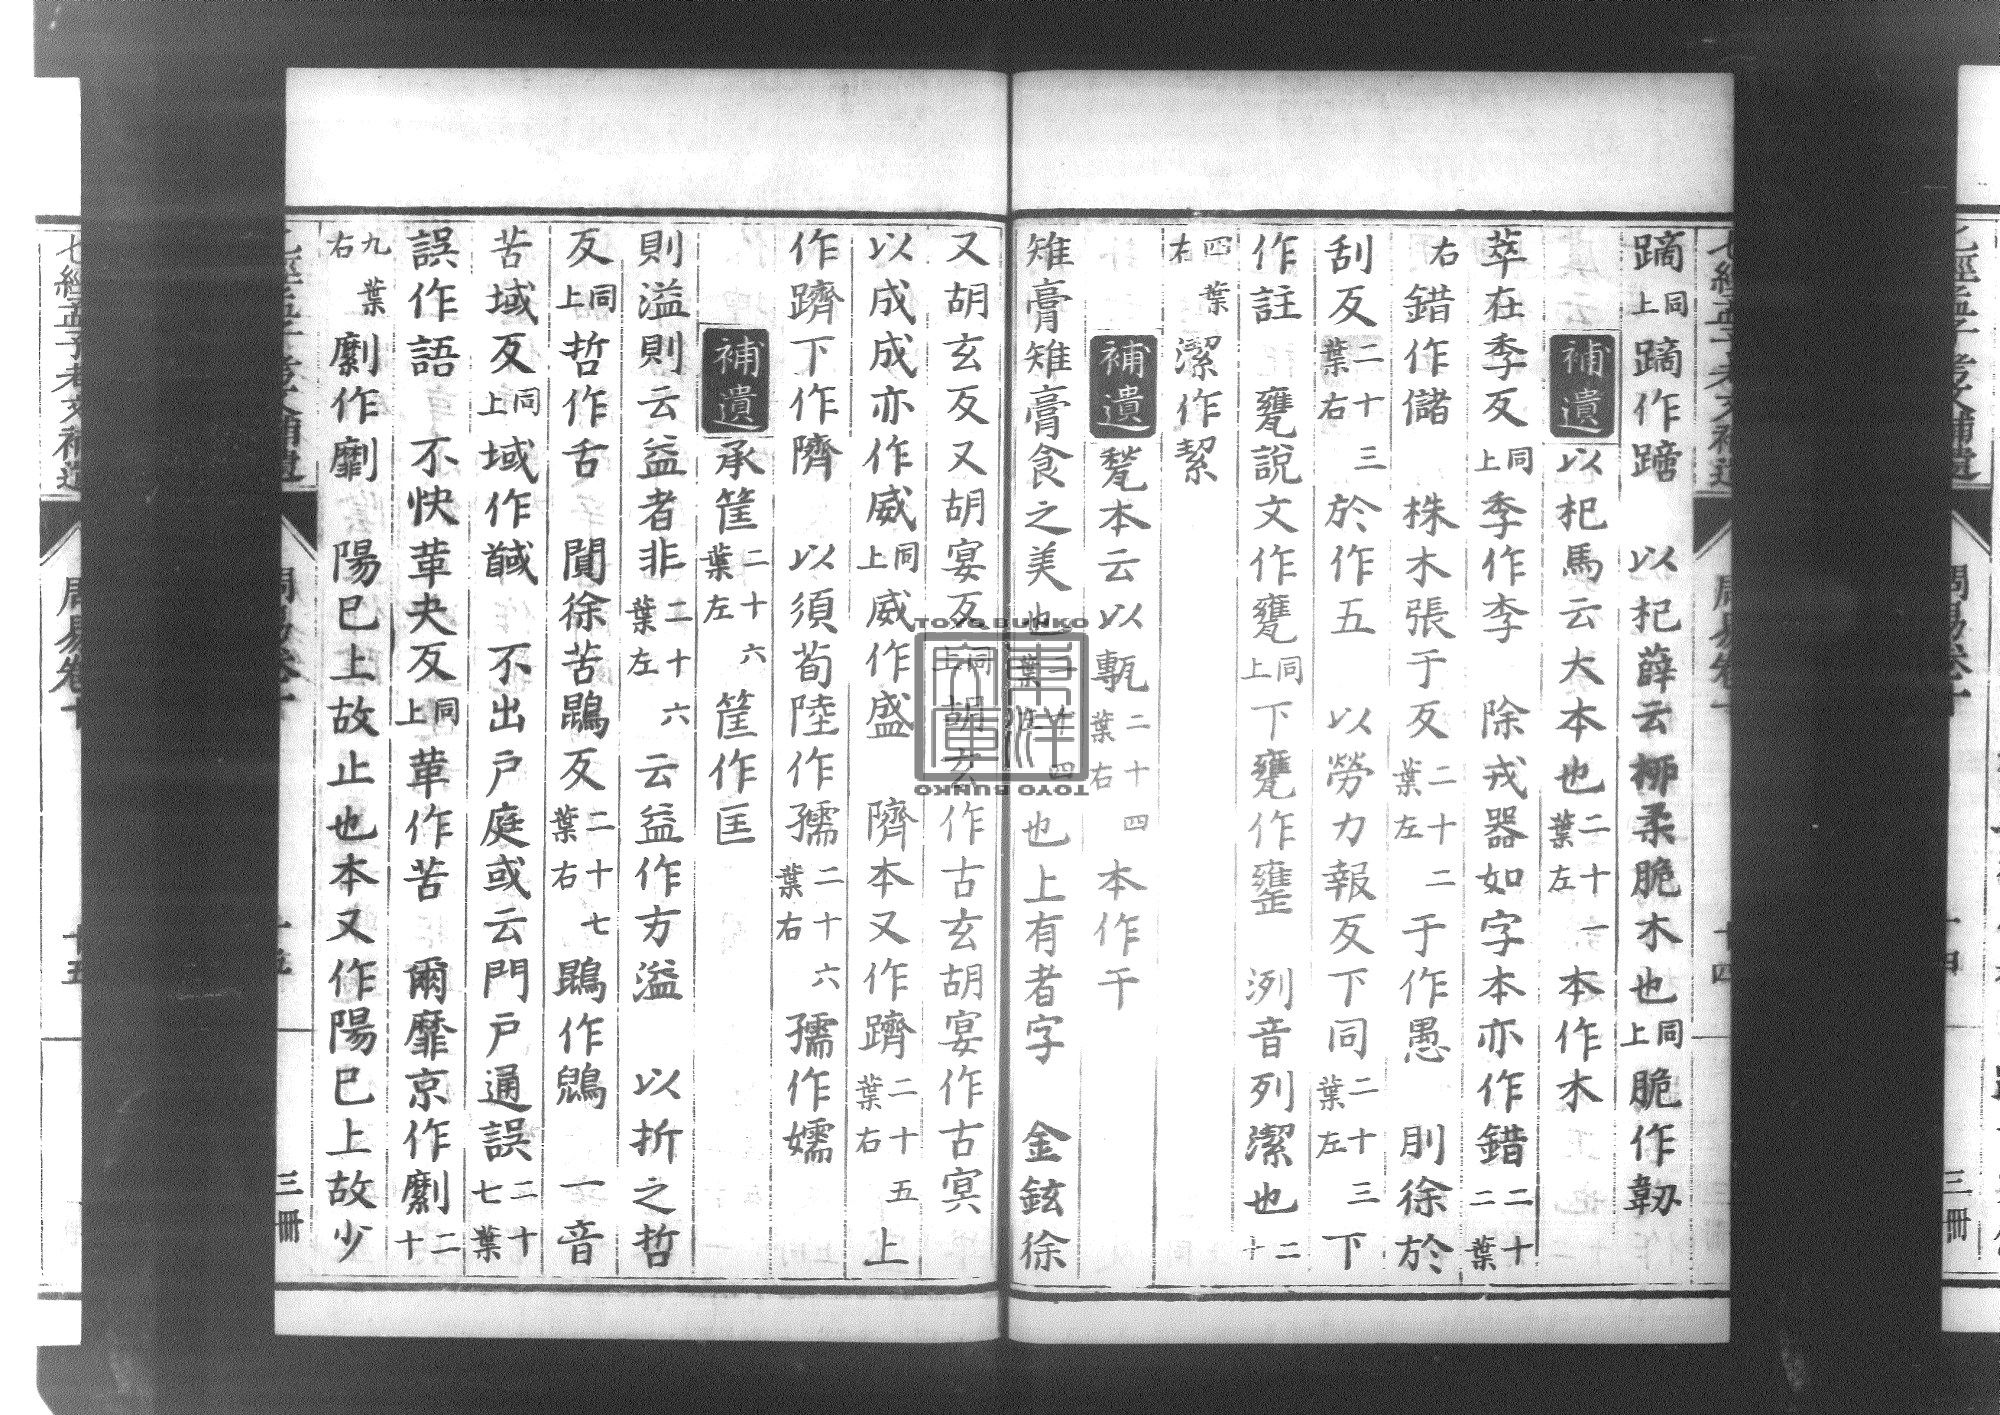 蹢同上蹢作蹄　以杞薛云柳柔脆木也同上脆作韌
補遺以杞馬云大本也二十一葉左本作木
萃在季反同上季作李　除戎器如字本亦作錯二十二葉
右錯作儲　株木張于反二十二葉左于作愚　刖徐於
刮反二十三葉右於作五　以勞力報反下同二十三葉左下
作註　甕説文作甕同上下甕作罋　洌音列潔也二十
四葉右潔作絜
補遺甃本云以甎二十四葉右本作干
雉膏雉膏食之美也二十四葉左也上有者字　金鉉徐
又胡玄反又胡宴反同上胡玄作古玄胡宴作古㝠
以成成亦作威同上威作盛　隮本又作躋二十五葉右上
作躋下作隮　以須荀陸作孺二十六葉右孺作嬬
補遺承筐二十六葉左筐作匡
則溢則云益者非二十六葉左云益作方溢　以折之哲
反同上哲作舌　闃徐苦鶪反二十七葉右鶪作鵙　一音
苦域反同上域作馘　不出戶庭或云門戶通誤二十七葉
誤作語　不快葷夬反同上葷作苦　爾靡京作劘二十
九葉右劘作䴢　陽已上故止也本又作陽已上故少
七經孟子考文補遺　周易卷十　十四
七經孟子考文補遺　周易卷十　十五　三冊